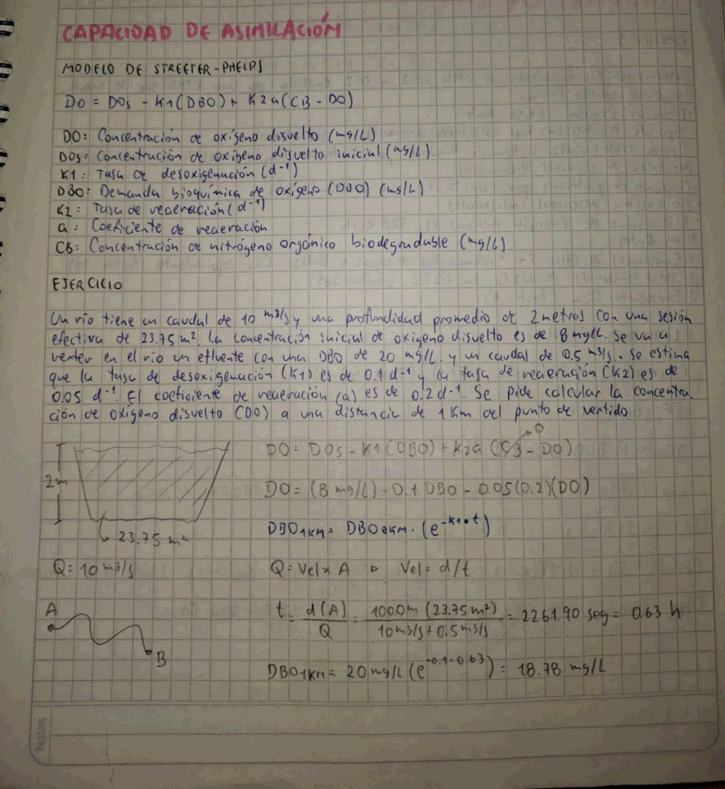 CAPACIDAD DE ASIMILACIÓN
MODELO DE STREETER-PHELPS
DO = DOs - K1(DBO) + K2a(CB - DO)
DO = Concentración de oxígeno disuelto (mg/L)
DOs = Concentración de oxígeno disuelto inicial (mg/L)
K1 = Tasa de desoxigenación (d⁻¹)
DBO = Demanda bioquímica de oxígeno (DBO) (mg/L)
K2 = Tasa de reaeración (d⁻¹)
a = Coeficiente de reaeración
CB = Concentración de nitrógeno orgánico biodegradable (mg/L)
EJERCICIO
Un río tiene un caudal de 10 m3/s y una profundidad promedio de 2 metros con una sesión
efectiva de 23.75 m², la concentración inicial de oxígeno disuelto es de 8 mg/L. Se va a
verter en el río un efluente con una DBO de 20 mg/L y un caudal de 0.5 m3/s. Se estima
que la tasa de desoxigenación (K1) es de 0.1 d⁻¹ y la tasa de reaeración (K2) es de
0.05 d⁻¹. El coeficiente de reaeración (a) es de 0.2 d⁻¹. Se pide calcular la concentra
ción de oxígeno disuelto (DO) a una distancia de 1 Km del punto de vertido
DO = DOs - K1(DBO) + K2a (CB - DO)
0
2m
DO = (8 mg/L) - 0.1 DBO - 0.05(0.2)(DO)
23.75 m²
DBO1KM = DBO0KM · (e^-K1·t)
Q = 10 m3/s
Q = Vel x A ▷ Vel = d/t
A
B
t = d(A)/Q = 1000m (23.75 m²)/10 m3/s + 0.5 m3/s = 2261.90 seg = 0.63 h
DBO1KM = 20 mg/L (e^-0.1·0.63) = 18.78 mg/L
Notas